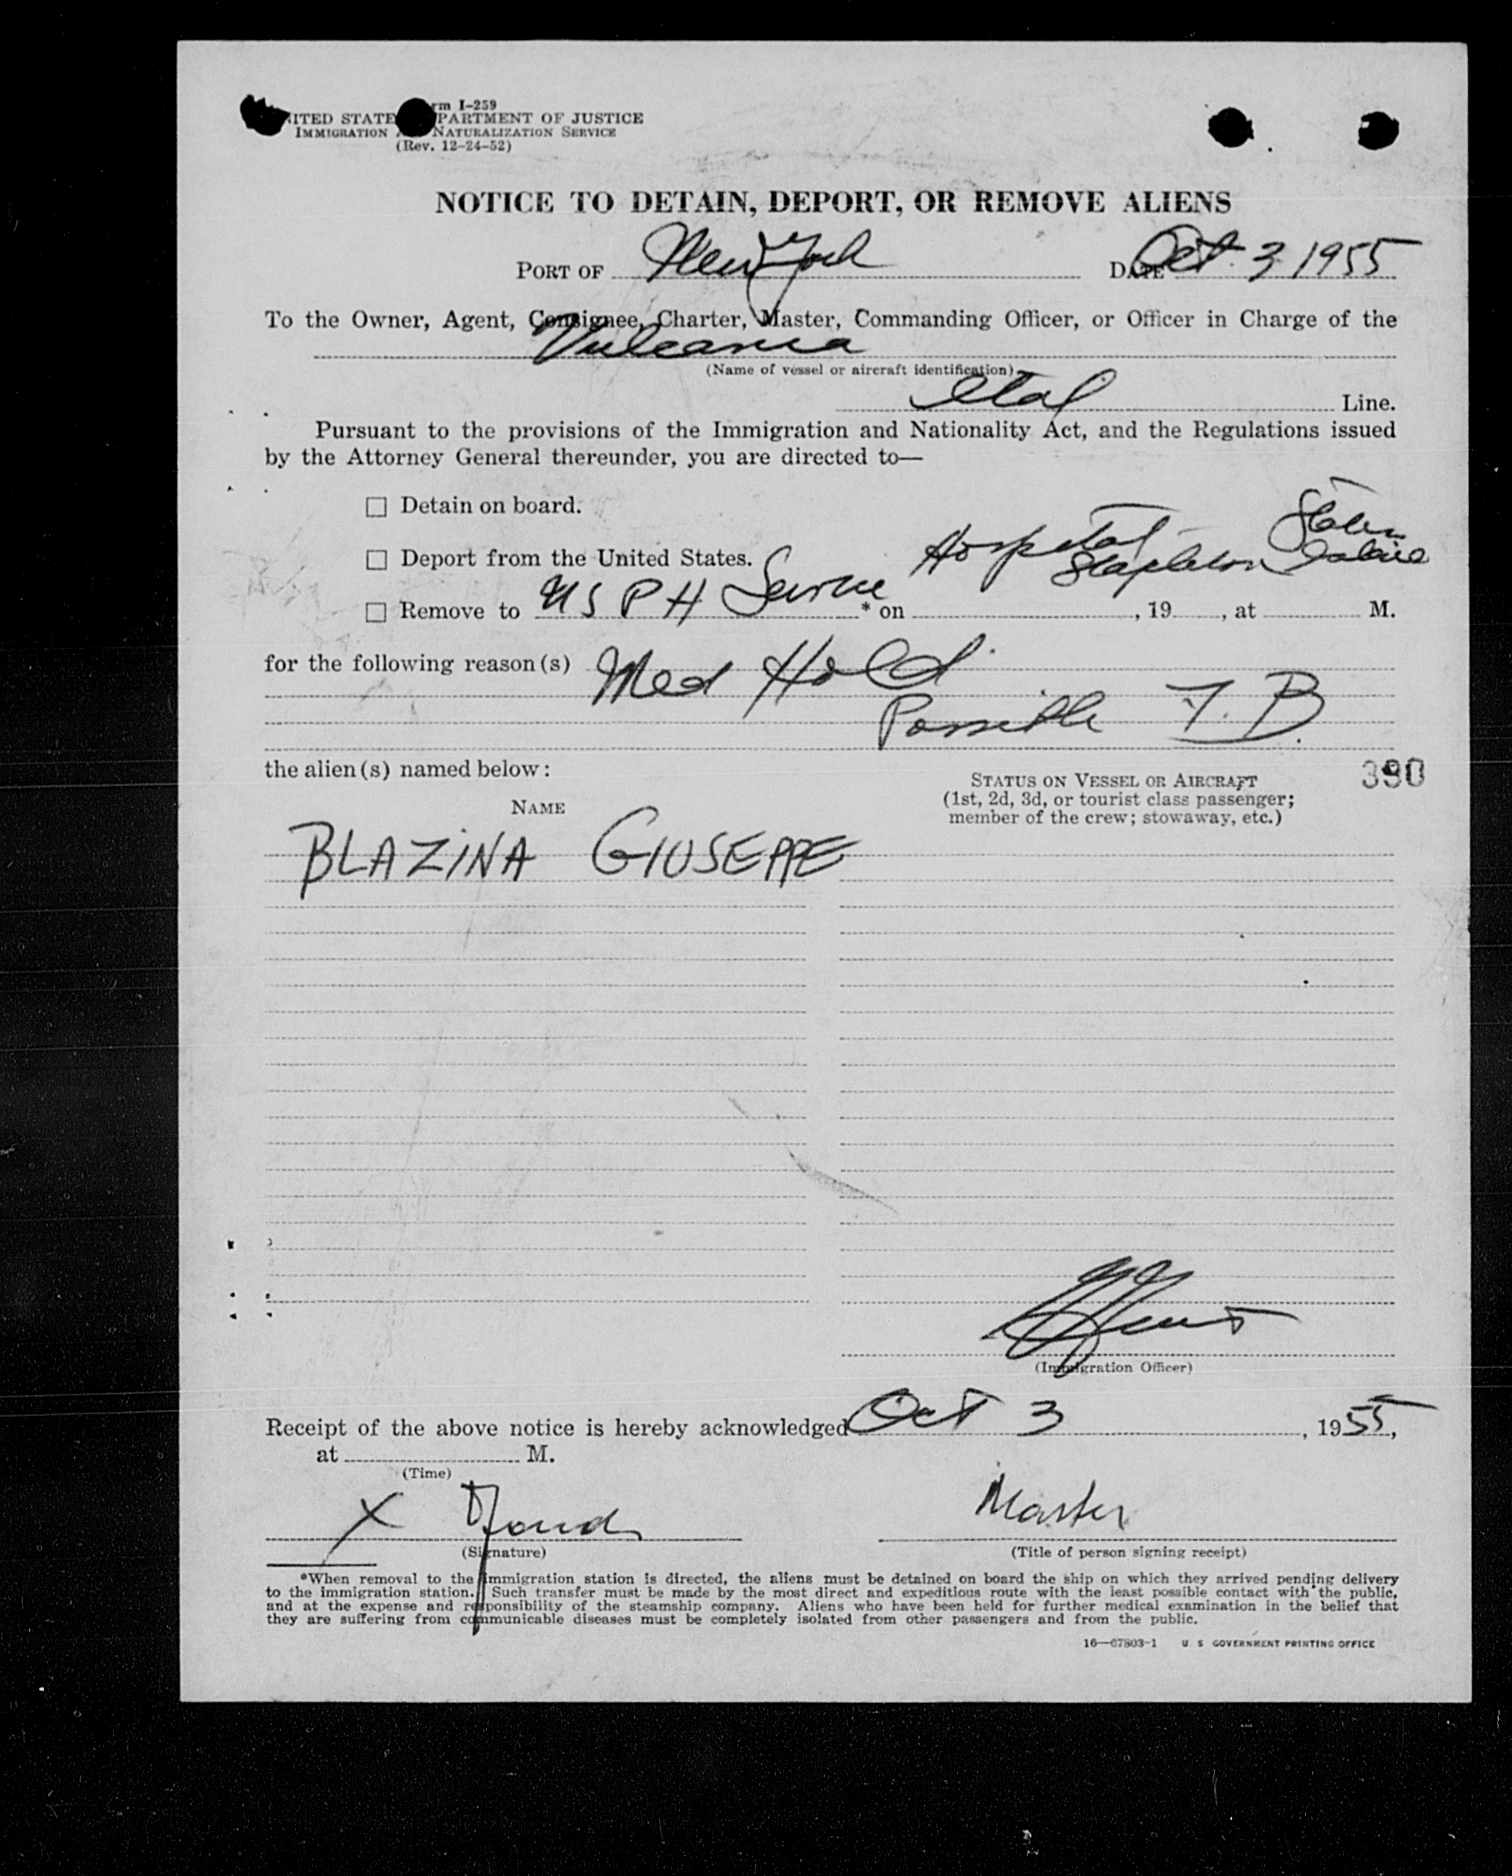 Form I-259
UNITED STATES DEPARTMENT OF JUSTICE
IMMIGRATION AND NATURALIZATION SERVICE
(Rev. 12-24-52)
NOTICE TO DETAIN, DEPORT, OR REMOVE ALIENS
PORT OF New York DATE Oct. 3 1955
To the Owner, Agent, Consignee, Charter, Master, Commanding Officer, or Officer in Charge of the
Vulcania
(Name of vessel or aircraft identification)
Ital Line.
Pursuant to the provisions of the Immigration and Nationality Act, and the Regulations issued
by the Attorney General thereunder, you are directed to—
☐ Detain on board.
☐ Deport from the United States.
Hospital Stapleton Staten Island
☐ Remove to U S P H Service * on , 19 , at M.
for the following reason(s) Med Hold
Possible T. B.
the alien(s) named below:
390
STATUS ON VESSEL OR AIRCRAFT
(1st, 2d, 3d, or tourist class passenger;
member of the crew; stowaway, etc.)
NAME
BLAZINA GIUSEPPE
(Immigration Officer)
Receipt of the above notice is hereby acknowledged Oct 3 , 1955,
at M.
(Time)
X
Master
(Signature)
(Title of person signing receipt)
*When removal to the immigration station is directed, the aliens must be detained on board the ship on which they arrived pending delivery
to the immigration station. Such transfer must be made by the most direct and expeditious route with the least possible contact with the public,
and at the expense and responsibility of the steamship company. Aliens who have been held for further medical examination in the belief that
they are suffering from communicable diseases must be completely isolated from other passengers and from the public.
16—67803-1 U. S. GOVERNMENT PRINTING OFFICE